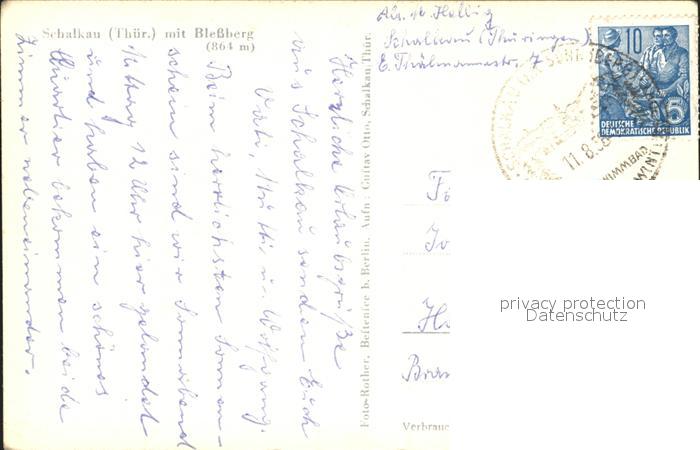 Schalkau (Thür.) mit Bleßberg
(864 m)
Herzliche Urlaubsgrüße
aus Schalkau senden Euch
Vati, Mutti u. Wolfgang.
Beim herrlichsten Sonnen-
schein sind wir Sonnabend
Mittag 12 Uhr hier gelandet
und haben ein schönes
Quartier bekommen beide
Zimmer nebeneinander.
Foto-Rother, Beltenice b. Berlin. Aufn: Gustav Otto, Schalkau/Thür.
Schalkau (Thüringen)
E. Thälmannstr. 7
10
5
DEUTSCHE
DEMOKRATISCHE REPUBLIK
11.8.5
Verbrauc
privacy protection
Datenschutz